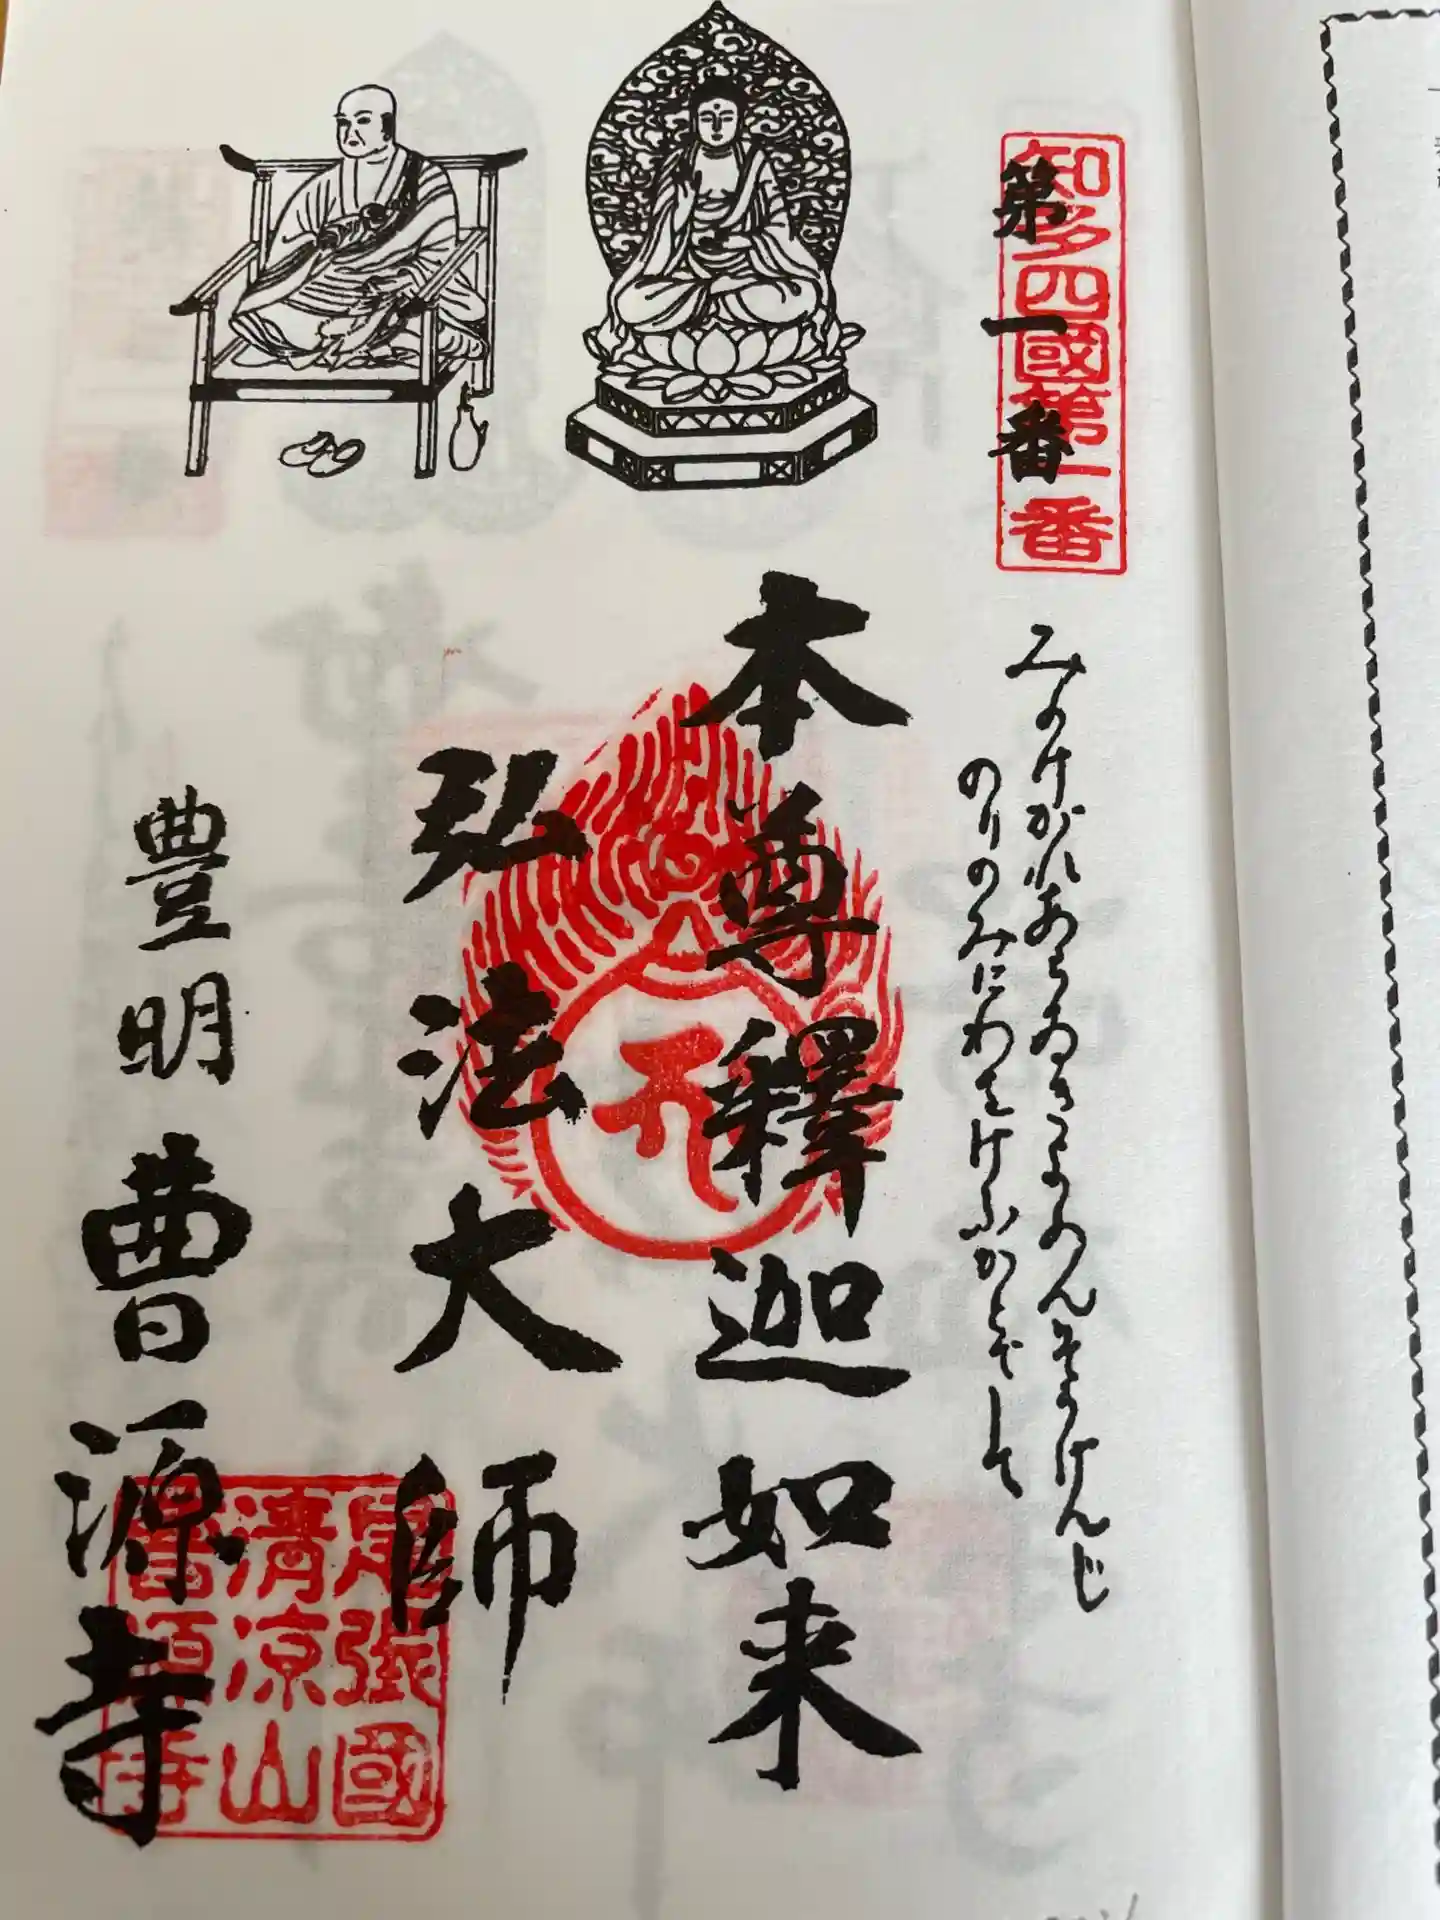 知多四國第一番
第一番
みのけがれあらゐきよめんそうげんじ
のりのみにわをけふかどでして
本尊釋迦如来
弘法大師
豊明 曹源寺
尾張國
清凉山
曹源寺